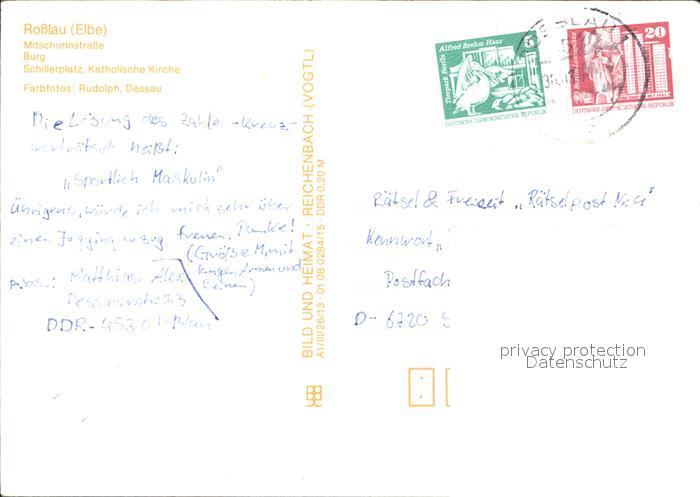 Roßlau (Elbe)
Mitschurinstraße
Burg
Schillerplatz, Katholische Kirche
Farbfotos: Rudolph, Dessau
Die Lösung des Zahlen-Kreuz-
worträtsel heißt:
„Sportlich Maskulin"
Übrigens, würde ich mich sehr über
einen Jogginganzug freuen. Danke!
(Größe M, mit
langen Armen und
Beinen)
Abs.: Matthias Alex
Dessauerstr. 33
DDR-4530
BILD UND HEIMAT · REICHENBACH (VOGTL)
A1/III/26/13 · 01 08 0284/15 · DDR 0,20 M
Alfred Brehm Haus
Tierpark Berlin
5
DEUTSCHE DEMOKRATISCHE REPUBLIK
20
Berlin-Leninplatz
DEUTSCHE DEMOKRATISCHE REPUBLIK
Rätsel & Freizeit „Rätselpost Nr. 4"
Kennwort „
Postfach
D- 6720 S
privacy protection
Datenschutz